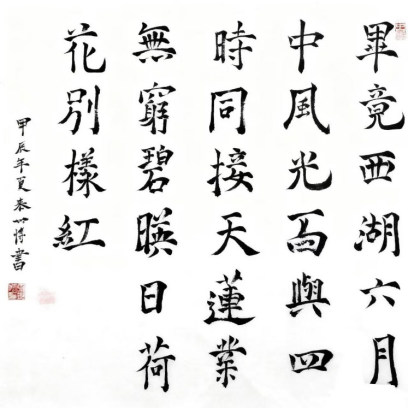 畢竟西湖六月
中風光與四
時同接天蓮業
無窮碧暎日荷
花別樣紅
甲辰年夏書